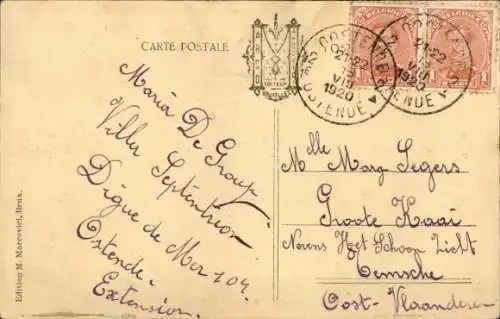 CARTE POSTALE
OOSTENDE
21-22
VIII
1920
OSTENDE
21-22
VIII
1920
BELGIQUE
Maria De Graef
Villa Septentrion
Digue de Mer 104.
Ostende-
Extension.
Melle Marg Segers
Groote Kaai
Nevens Het Schoon Zicht
Temsche
Oost-Vlaanderen
Edition M. Marcovici, Brux.